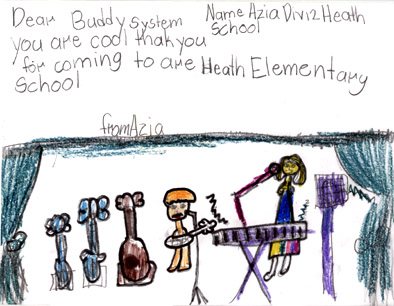 Dear Buddy System Name Azia Div12 Heath School
you are cool thak you
for coming to are Heath Elementary
School
from Azia